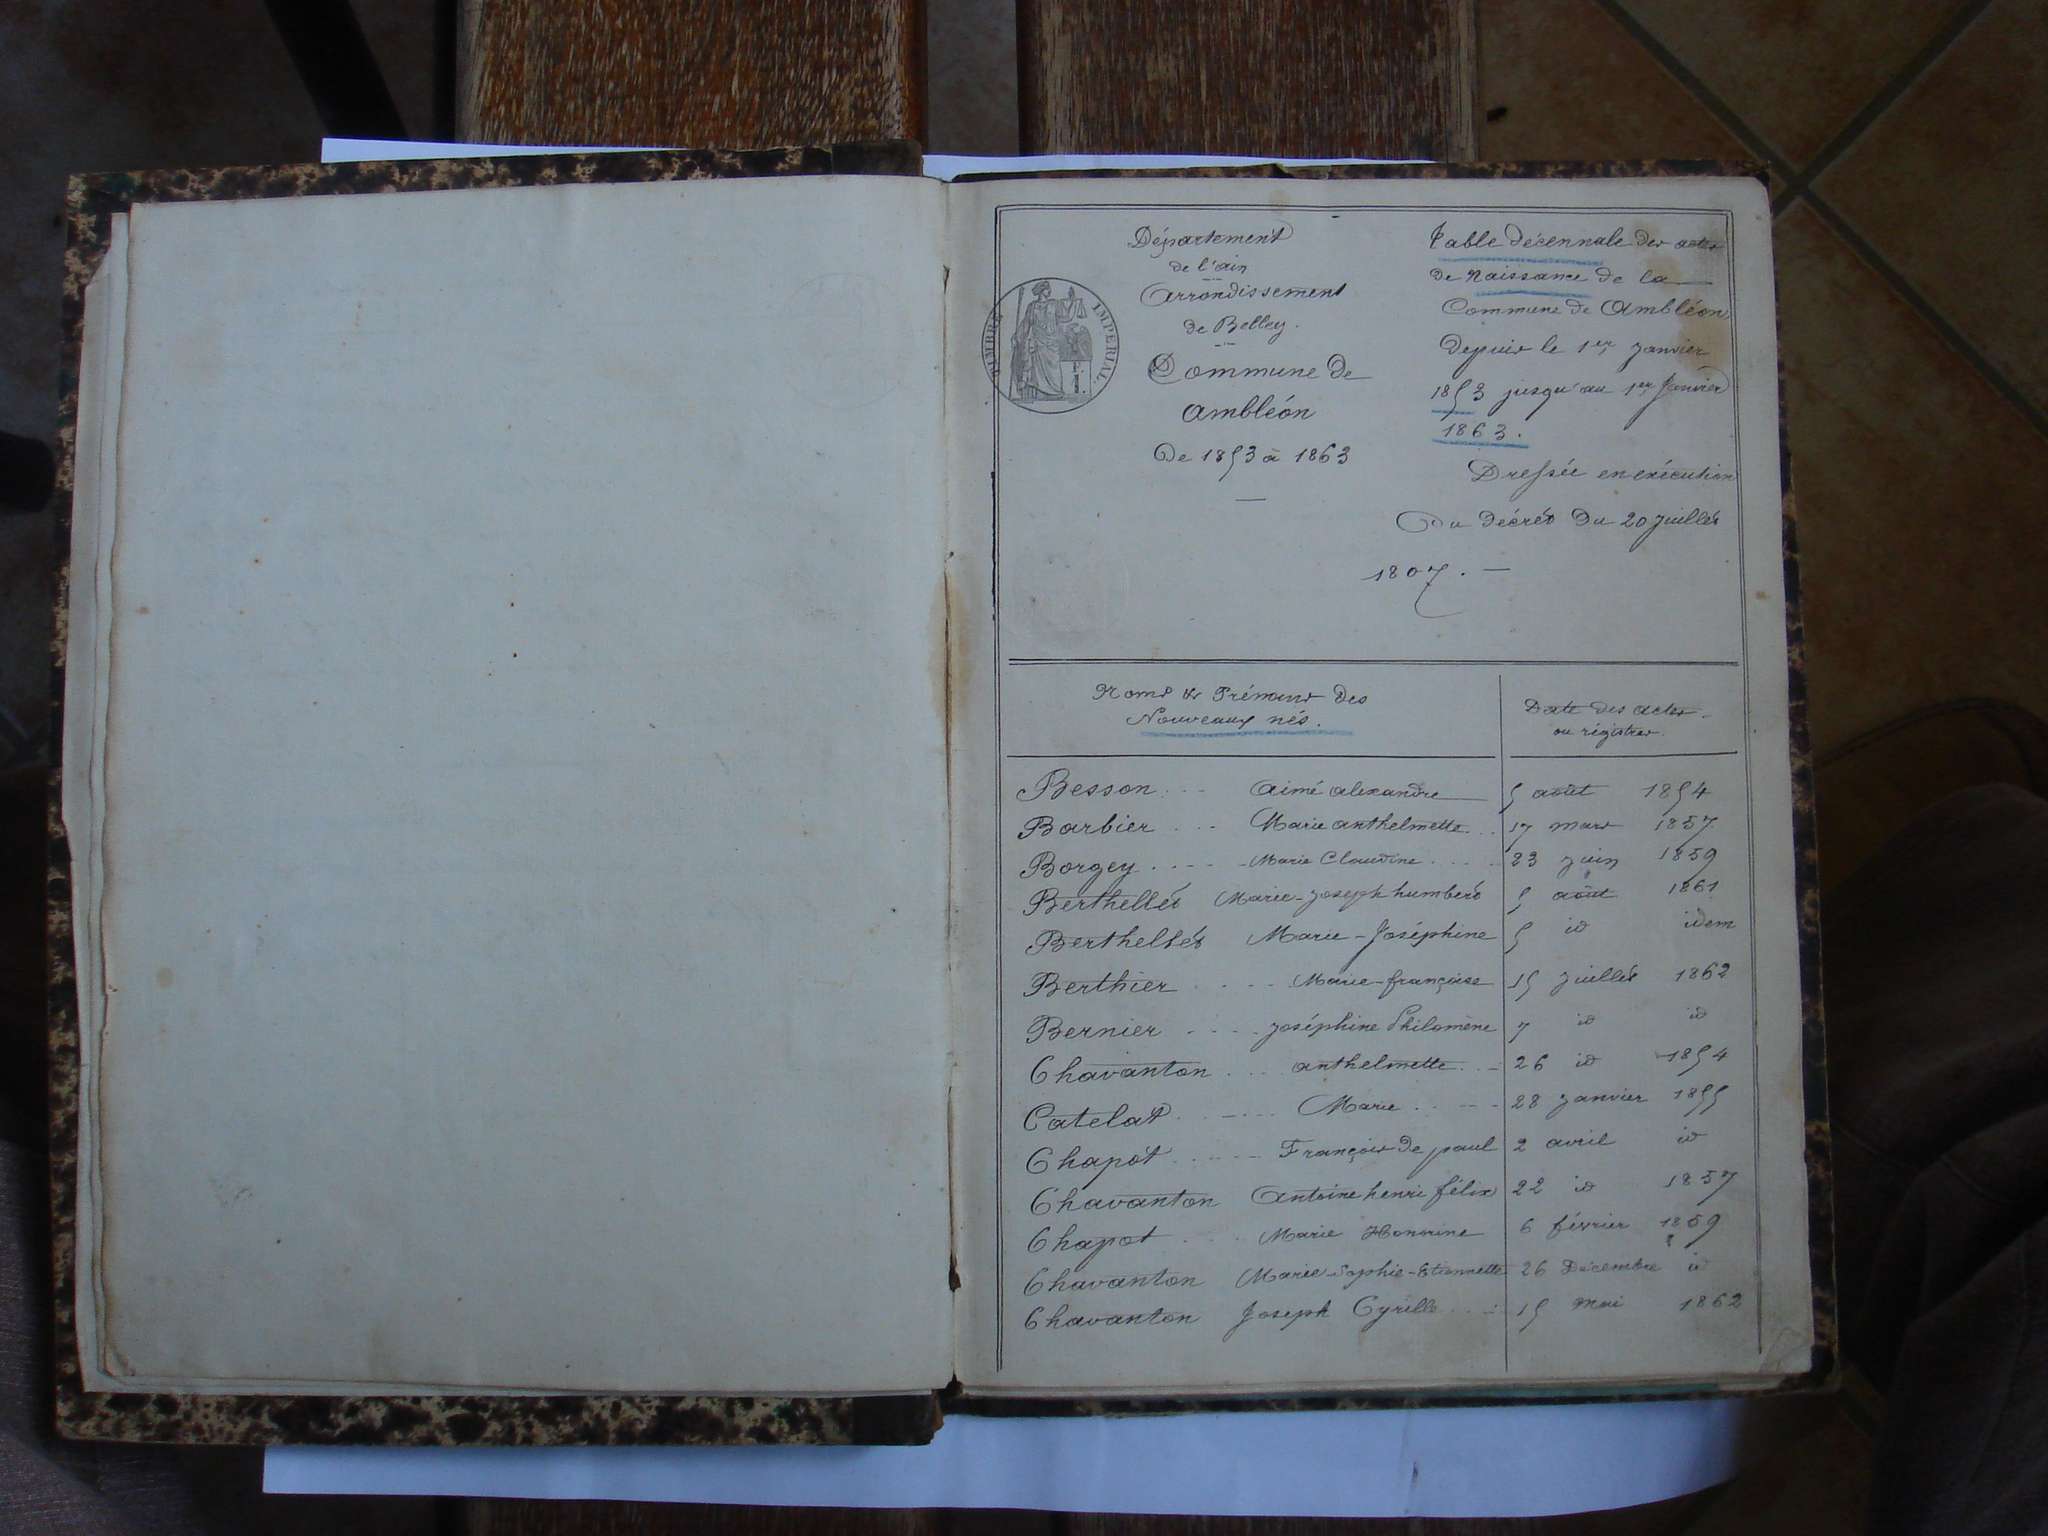 Département
de l'ain
Arrondissement
de Belley.
Commune de
Ambléon
De 1853 à 1863
TIMBRE IMPERIAL
Table décennale des actes
de Naissance de la
Commune de Ambléon
depuis le 1er Janvier
1853 jusqu'au 1er Janvier
1863.
Dressée en exécution
Du décrét Du 20 Juillét
1807.
Noms & Prénoms des
Nouveaux nés.
Date des actes
ou régistres.
Besson Aimé alexandre 5 août 1854
Barbier Marie anthelmette 17 mars 1857
Borgey Marie Claudine 23 juin 1859
Berthellét Marie-Joseph humbert 5 août 1861
Berthellét Marie-Joséphine 5 id idem
Berthier Marie-françoise 15 Juillét 1862
Bernier Joséphine Philomène 7 id id
Chavanton anthelmette 26 id 1854
Catelat Marie 28 Janvier 1855
Chapot François de paul 2 avril id
Chavanton Antoine henri félix 22 id 1857
Chapot Marie Honorine 6 février 1859
Chavanton Marie-Sophie-Etiennette 26 Décembre id
Chavanton Joseph Cyrille 15 Mai 1862